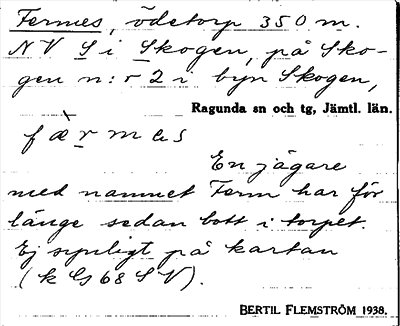 Fermes, ödetorp 350 m.
NV S i Skogen, på Sko-
gen n:r 2 i byn Skogen,
Ragunda sn och tg, Jämtl. län.
fæ̀rmes
En jägare
med namnet Ferm har för
länge sedan bott i torpet.
Ej synligt på kartan
(k Gs 68 SV).
BERTIL FLEMSTRÖM 1938.